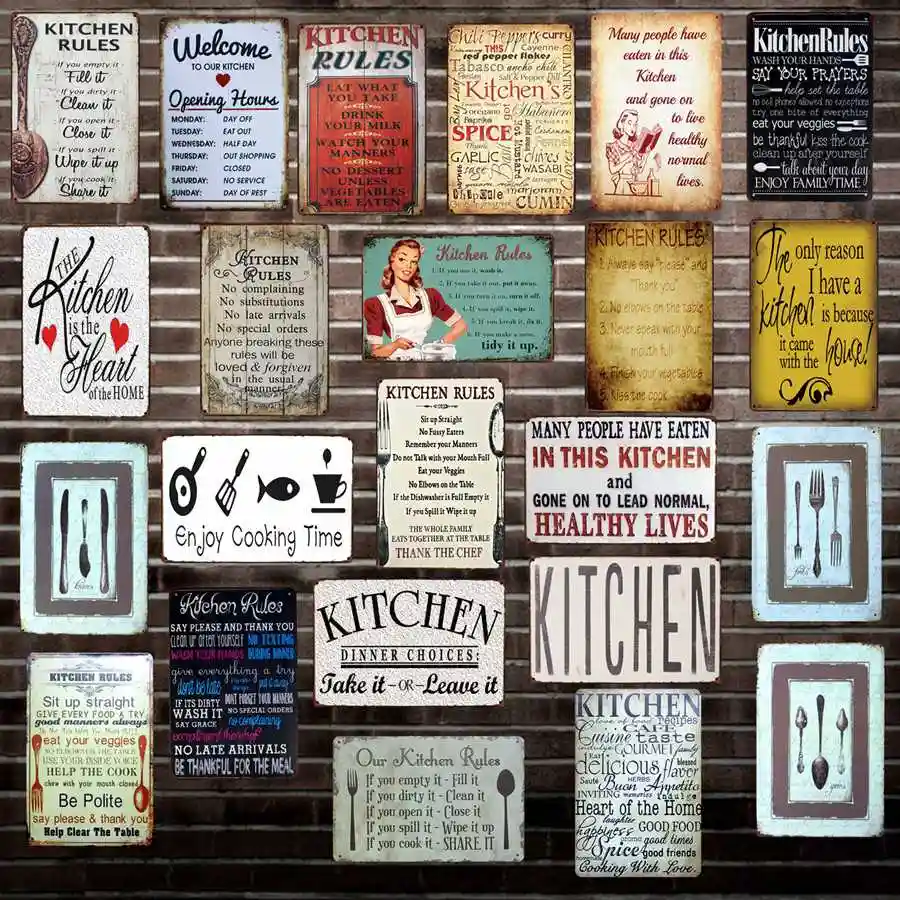 KITCHEN
RULES
If you empty it
Fill it
If you dirty it
Clean it
If you open it
Close it
If you spill it
Wipe it up
If you cook it
Share it
Welcome
TO OUR KITCHEN
Opening Hours
MONDAY: DAY OFF
TUESDAY: EAT OUT
WEDNESDAY: HALF DAY
THURSDAY: OUT SHOPPING
FRIDAY: CLOSED
SATURDAY: NO SERVICE
SUNDAY: DAY OF REST
KITCHEN
RULES
EAT WHAT
YOU TAKE
DRINK
YOUR MILK
WATCH YOUR
MANNERS
NO DESSERT
UNLESS
VEGETABLES
ARE EATEN
Chili Peppers curry
THIS Cayenne
red pepper flakes
Tabasco ancho chili
Salt & Pepper Dill
Kitchen's
Habanero
SPICE
GARLIC
chives
WASABI
marjoram
CUMIN
Many people have
eaten in this
Kitchen
and gone on
to live
healthy
normal
lives.
KitchenRules
WASH YOUR HANDS
SAY YOUR PRAYERS
help set the table
no cell phones allowed no exceptions
try one bite of everything
eat your veggies
be thankful kiss the cook
clean up after yourself
talk about your day
ENJOY FAMILY TIME
THE
Kitchen
is the
Heart
of the HOME
KITCHEN
RULES
No complaining
No substitutions
No late arrivals
No special orders
Anyone breaking these
rules will be
loved & forgiven
in the usual
manner
Kitchen Rules
1. If you use it, wash it.
2. If you take it out, put it away.
3. If you turn it on, turn it off.
4. If you spill it, wipe it.
5. If you break it, fix it.
6. If you make a mess,
tidy it up.
KITCHEN RULES
1. Always say "please" and
"Thank you"
2. No elbows on the table
3. Never speak with your
mouth full
4. Finish your vegetables
5. Kiss the cook
The only reason
I have a
kitchen is because
it came
with the house!
knives
Enjoy Cooking Time
KITCHEN RULES
Sit up Straight
No Fussy Eaters
Remember your Manners
Do not Talk with your Mouth Full
Eat your Veggies
No Elbows on the Table
If the Dishwasher is Full Empty it
If you Spill it Wipe it up
THE WHOLE FAMILY
EATS TOGETHER AT THE TABLE
THANK THE CHEF
MANY PEOPLE HAVE EATEN
IN THIS KITCHEN
and
GONE ON TO LEAD NORMAL,
HEALTHY LIVES
forks
Kitchen Rules
SAY PLEASE AND THANK YOU
CLEAN UP AFTER YOURSELF NO TEXTING
WASH YOUR HANDS DURING DINNER
give everything a try
don't be late
IF ITS DIRTY DON'T FORGET YOUR MANNERS
WASH IT NO SPECIAL ORDERS
SAY GRACE no complaining
compliment the chef
NO LATE ARRIVALS
BE THANKFUL FOR THE MEAL
KITCHEN
DINNER CHOICES:
Take it -OR- Leave it
KITCHEN
KITCHEN RULES
Sit up straight
GIVE EVERY FOOD A TRY
good manners always
eat your veggies
NO ELBOWS ON THE TABLE
USE YOUR INSIDE VOICE
HELP THE COOK
chew with your mouth closed
Be Polite
say please & thank you
Help Clear The Table
Our Kitchen Rules
If you empty it - Fill it
If you dirty it - Clean it
If you open it - Close it
If you spill it - Wipe it up
If you cook it - SHARE IT
KITCHEN
love of food recipes
CAFE
Cuisine taste
indulge GOURMET family
delicious blessed
flavor
Sauté HERBS Buon Appetito
INVITING memories Indulge
Heart of the Home
laughter
happiness GOOD FOOD
aroma good times
Spice good friends
Cooking With Love.